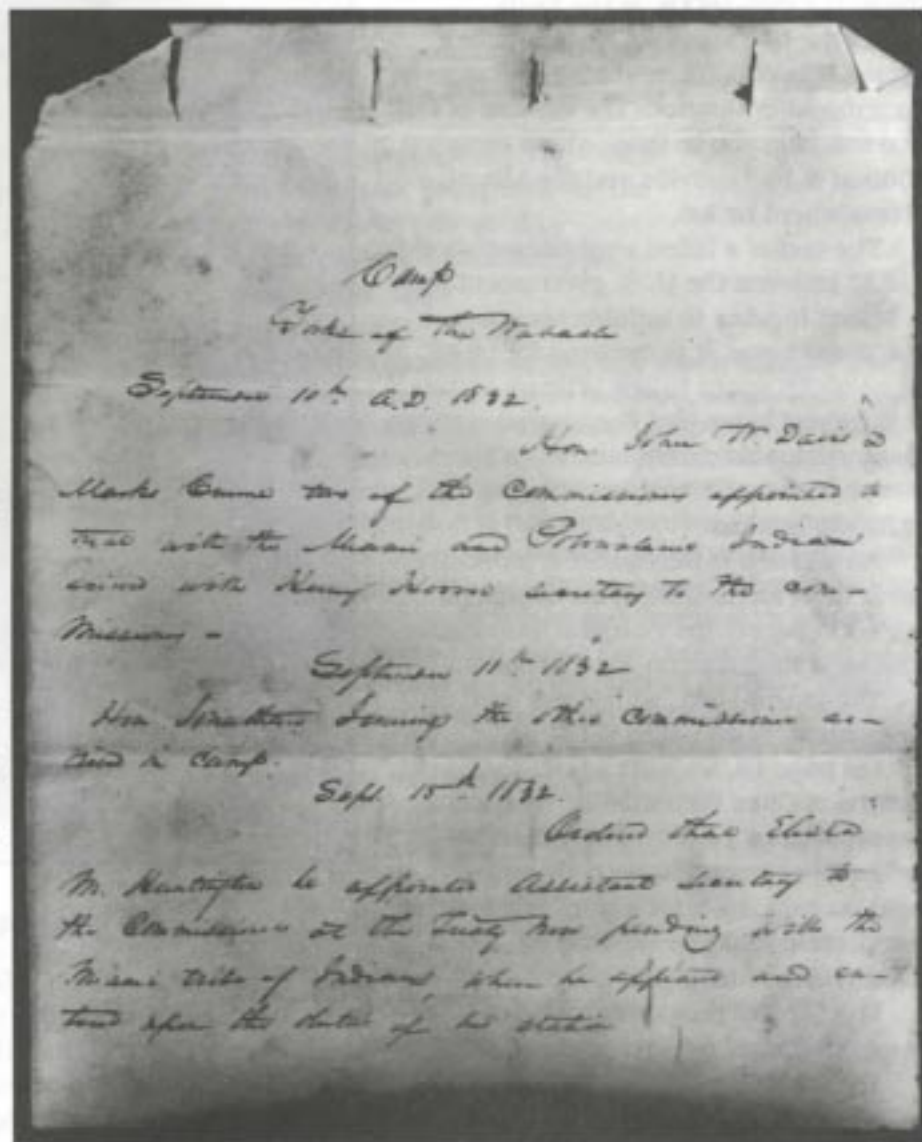 Camp
Forks of the Wabash
September 10th A.D. 1832.
Hon. John W. Davis &
Marks Crume two of the Commissioners appointed to
treat with the Miami and Potawatamie Indians
arrived with Henry Hoover secretary to the com-
missioners -
September 11th 1832
Hon Jonathan Jennings the other Commissioner ar-
rived in camp.
Sept. 15th 1832.
Ordered that Elisha
M. Huntington be appointed Assistant secretary to
the Commissioners at the Treaty now pending with the
Miami tribe of Indians, when he appeared and en-
tered upon the duties of his station